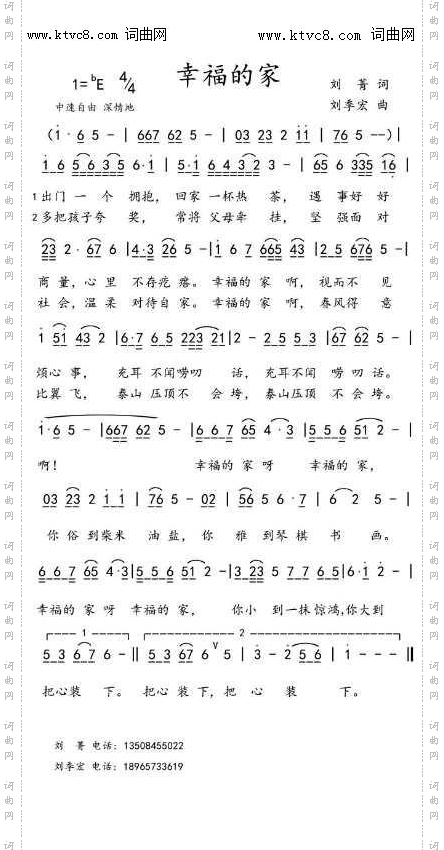 www.ktvc8.com 词曲网
www.ktvc8.com 词曲网
幸福的家
1=ᵇE 4/4
刘 菁 词
中速自由 深情地
刘季宏 曲
(1̇·6 5 - | 667 62 5 - | 03 23 2 1̇1̇ | 76 5 - -) |
1 6 5 6 3 5 6·1 | 5·1 6 4 3 2 3 - | 65 6 335 16 |
1出门 一 个 拥抱, 回家 一杯热 茶, 遇 事好 好
2多把孩子夸 奖, 常将 父母牵 挂, 坚 强面 对
23 2·67 6 | 4·3 26 5 - | 1 6 7 665 43 | 2 5 676 5 - |
商 量,心 里 不存疙 瘩。幸福的 家 啊, 视而不 见
社 会,温 柔 对待自 家。幸福的 家 啊, 春风得 意
1̇ 51 43 2 | 6·7 6 5 223 21 | 2 - 2 5 5 3 | 67 62 5 - |
烦心 事, 充耳 不闻唠叨 话, 充耳不闻 唠 叨 话。
比翼 飞, 泰山 压顶不 会 垮, 泰山压顶 不 会 垮。
1̇·6 5 - | 667 62 5 - | 6 6 7 65 4·3 | 5 5 6 51 2 - |
啊! 幸福的 家 呀 幸福的 家,
03 23 2 1̇ 1̇ | 76 5 - 02 | 56 5 6·7 | 6 2 5 - |
你 俗 到柴米 油 盐, 你 雅 到琴 棋 书 画。
6 6 7 65 4·3 | 5 5 6 51 2 - | 3 23 5 7 7 65 | 6·1 2 - |
幸福的 家 呀 幸福的 家, 你小 到一抹 惊鸿,你大到
1 2
5 3 67 6 - ‖ 5 3 67 6 ⱽ 5 | 3 - 2 5 6 | 1 - - - ‖
把心装 下。 把心 装 下, 把 心 装 下。
刘 菁 电话: 13508455022
刘季宏 电话: 18965733619